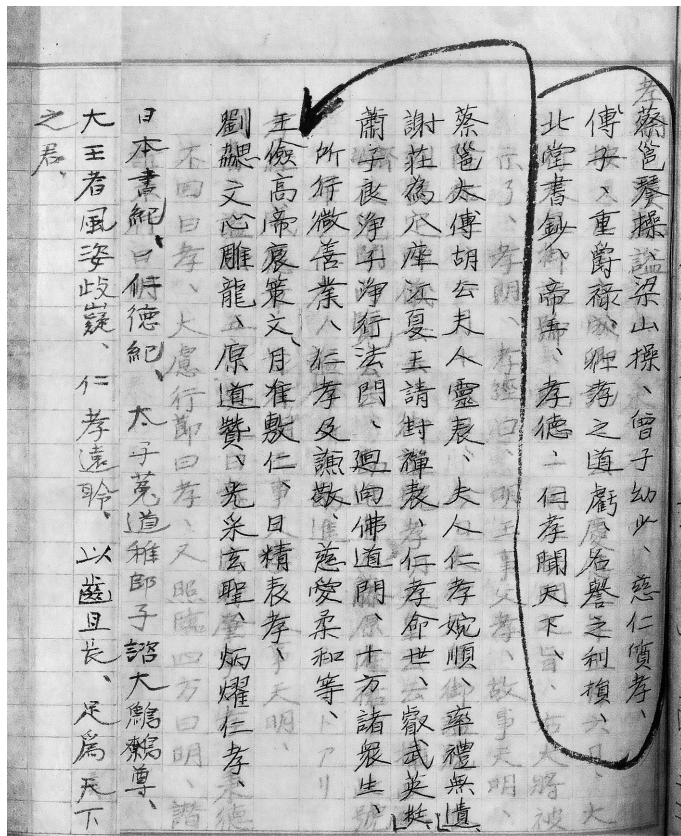 蔡邕琴操、梁山操、曾子幼少、慈仁質孝、
傅子、重爵祿、則孝之道虧、名譽之利損、
北堂書鈔、帝舜、孝德、仁孝聞天下、
蔡邕太傅胡公夫人靈表、夫人仁孝婉順、率禮無遺
謝莊為八座江夏王請封禪表、仁孝命世、叡武英挺
蕭子良淨子淨行法門、迴向佛道門、十方諸衆生、
所行微善業、仁孝及謙敬、慈愛柔和等、
王儉高帝哀策文、月准敷仁、日精表孝、
劉勰文心雕龍、原道贊、光采玄聖、炳燿仁孝、
日本書紀、仁德紀、太子菟道稚郎子諮大鷦鷯尊、
大王者風姿歧嶷、仁孝遠聆、以齒且长、足爲天下
之君、